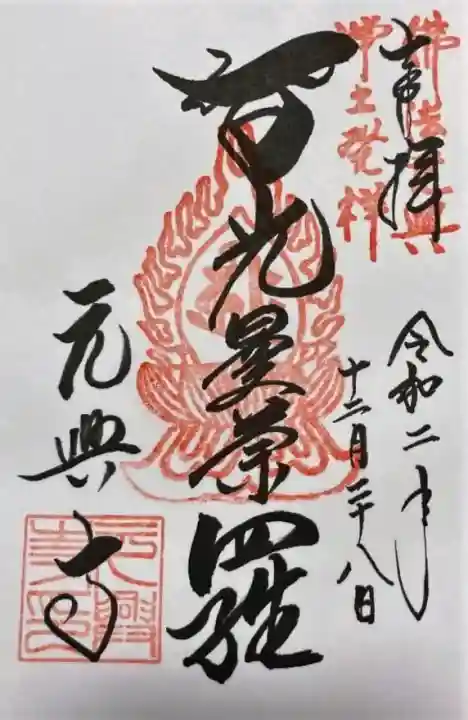 佛法元興
浄土発祥
奉拝
令和二年
十二月二十八日
智光曼荼羅
元興寺